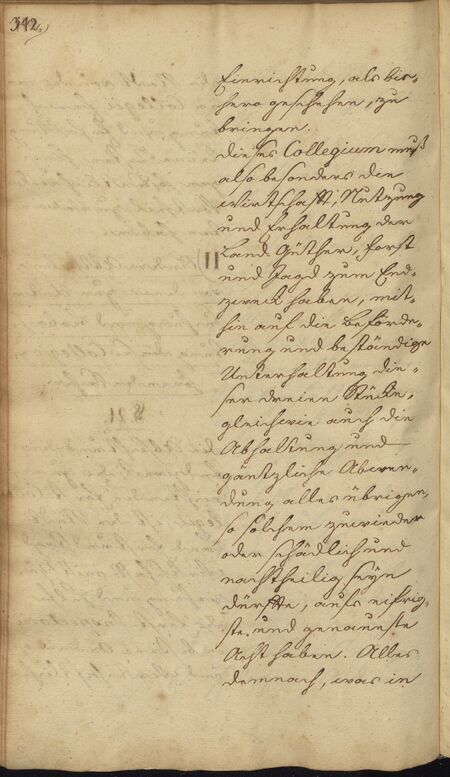 342.)
Einrichtung, als bis-
hero geschehen, zu
bringen.
Dieses Collegium muß
also besonders die
Wirtschafft, Nutzung
und Erhaltung der
Land Güther, Forst
und Jagd zum End-
zweck haben, mit-
hin auf die Beförde-
rung und beständige
Unterhaltung die-
ser dreien Stücke,
gleichwie auch die
Abhaltung und
gäntzliche Abwen-
dung alles übrigen,
so solchem zuwieder
oder schädlich und
nachtheilig seyn
dürffte, aufs eifrig-
ste und genaueste
Acht haben. Alles
demnach, was in